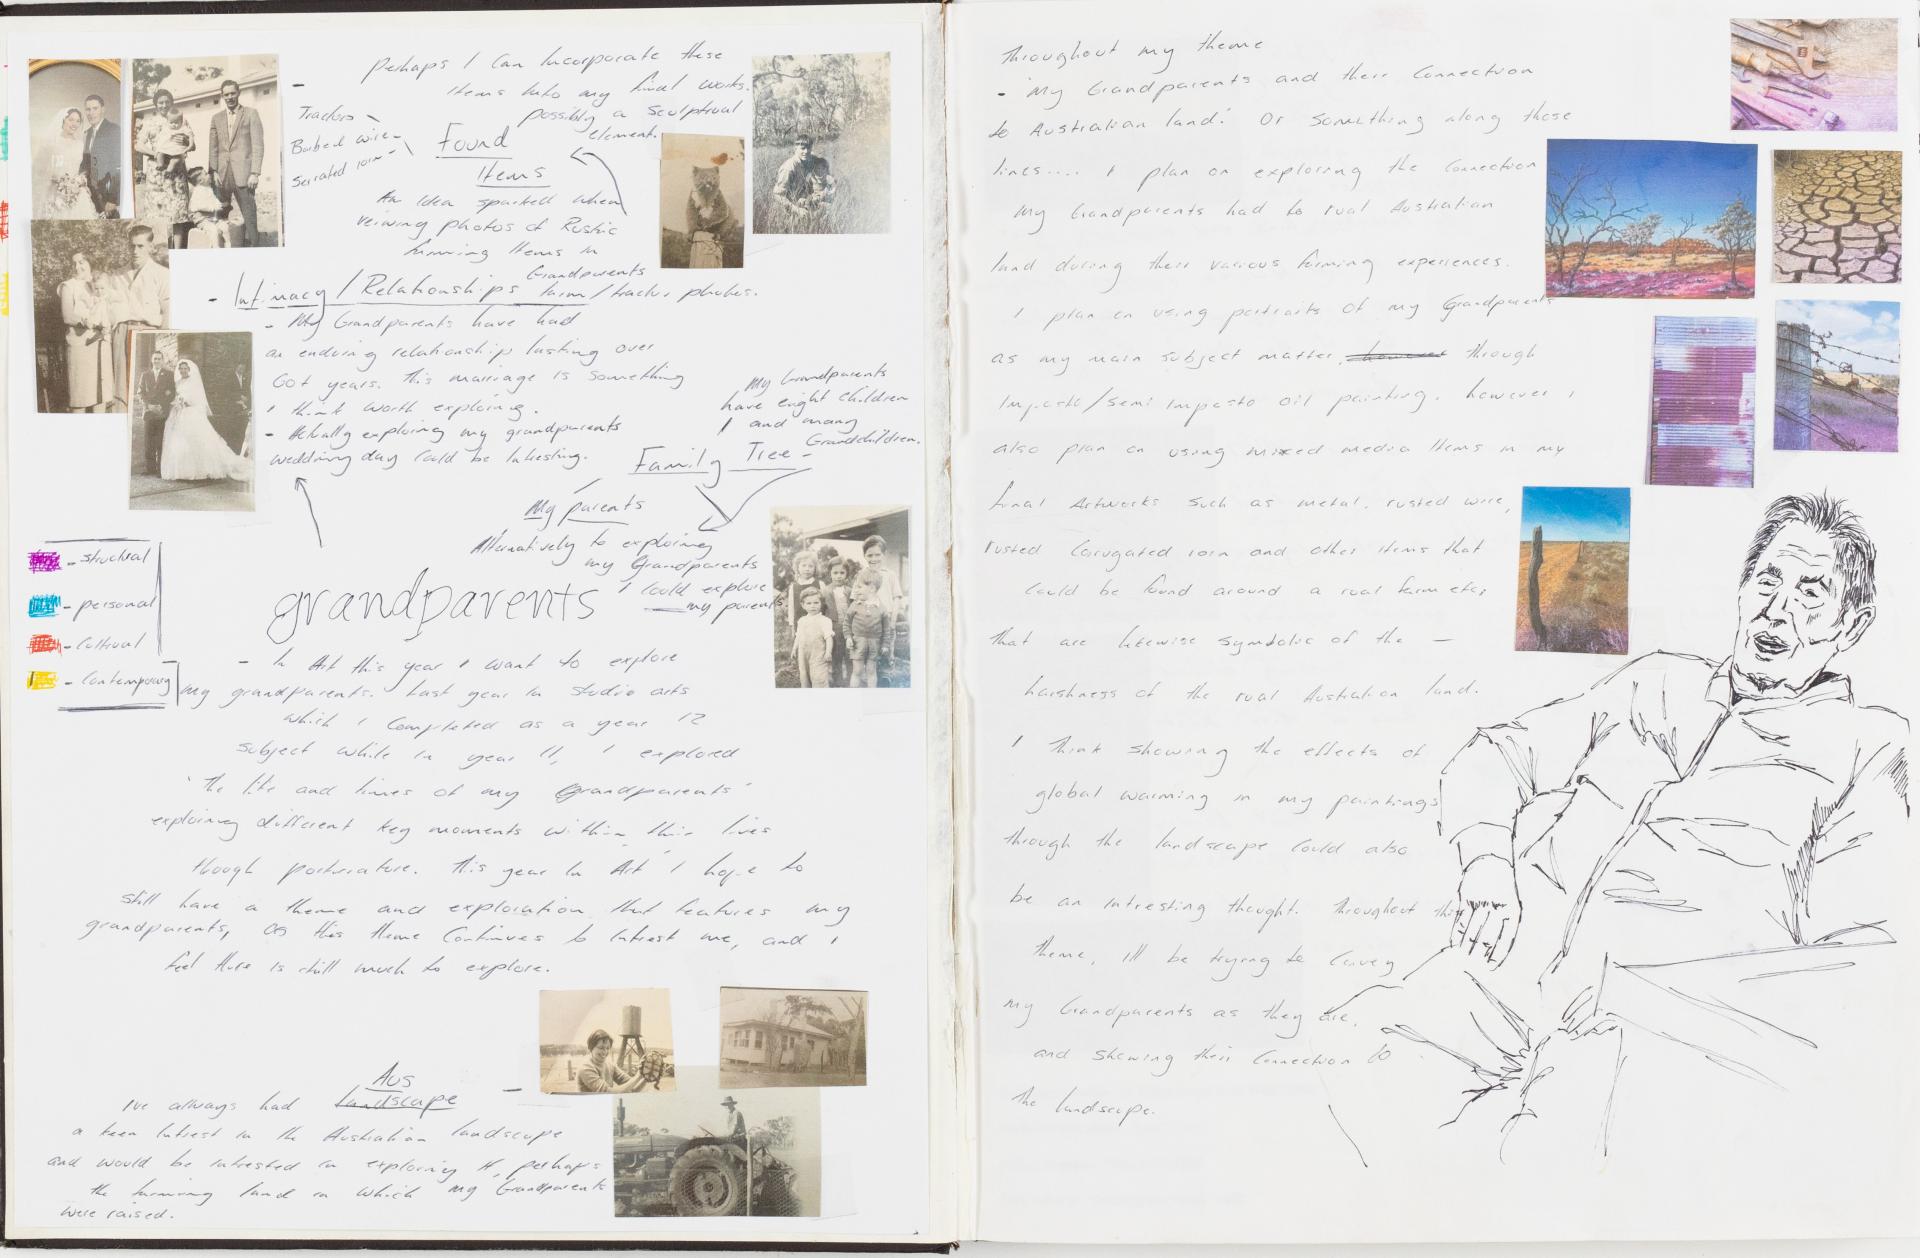 Perhaps I can Incorporate these
Items Into my final works.
possibly a sculptural
element.
- Tractors
Barbed wire
Serrated iron
Found
Items
An Idea sparked when
veiwing photos of Rustic
farming Items in
Grandparents
farm/tractor photos.
- Intimacy / Relationships
- My Grandparents have had
an enduring relationship lasting over
60+ years. This marriage is something
I think worth exploring.
- Actually exploring my grandparents
wedding day could be Intresting.
My Grandparents
have eight children
and many
Grandchildren.
Family Tree -
My parents
Alternatively to exploring
my Grandparents
I could explore
my parents
- structural
- personal
- Cultural
- Contemporary
grandparents
- In Art this year I want to explore
my grandparents. Last year in studio arts
which I completed as a year 12
subject while in year 11, I explored
'the life and times of my Grandparents'
exploring different key moments within their lives
though portraiture. This year In Art I hope to
still have a theme and exploration that features my
grandparents, as this theme Continues to Intrest me, and I
feel there is still much to explore.
Aus
Landscape -
I've always had
a keen Intrest in the Australian landscape
and would be intrested in exploring it, perhaps
the farming land in which my Grandparents
were raised.
Throughout my theme
- 'My Grandparents and their Connection
to Australian land.' Or Something along those
lines.... I plan on exploring the Connection
my Grandparents had to rual Australian
land during their various farming experiences.
I plan on using portraits of my Grandparents
as my main subject matter, however through
Impasto/semi Impasto oil painting. however I
also plan on using mixed media Items in my
final Artworks such as metal, rusted wire,
rusted Corugated iron and other items that
Could be found around a rual farm etc;
that are likewise symbolic of the -
harshness of the rual Australian land.
I think showing the effects of
global warming in my paintings
through the landscape could also
be an intresting thought. Throughout this
theme, Ill be trying to Convey
my Grandparents as they are,
and showing their Connection to
the landscape.